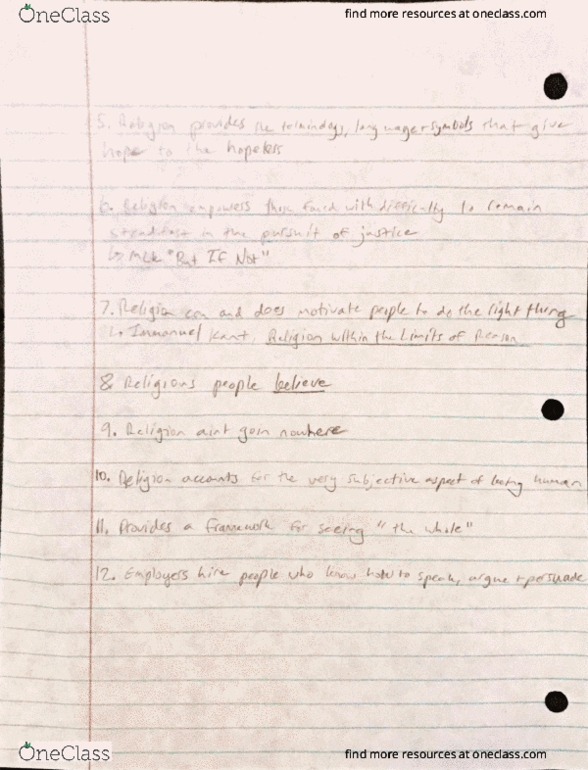 OneClass
find more resources at oneclass.com
5. Religion provides the terminology, language + symbols that give
hope to the hopeless
6. Religion empowers those faced with difficulty to remain
steadfast in the pursuit of justice
↳ MLK "But If Not"
7. Religion can and does motivate people to do the right thing
↳ Immanuel Kant, Religion within the Limits of Reason
8 Religious people believe
9. Religion aint goin nowhere
10. Religion accounts for the very subjective aspect of being human
11. Provides a framework for seeing "the whole"
12. Employers hire people who know how to speak, argue + persuade
OneClass
find more resources at oneclass.com